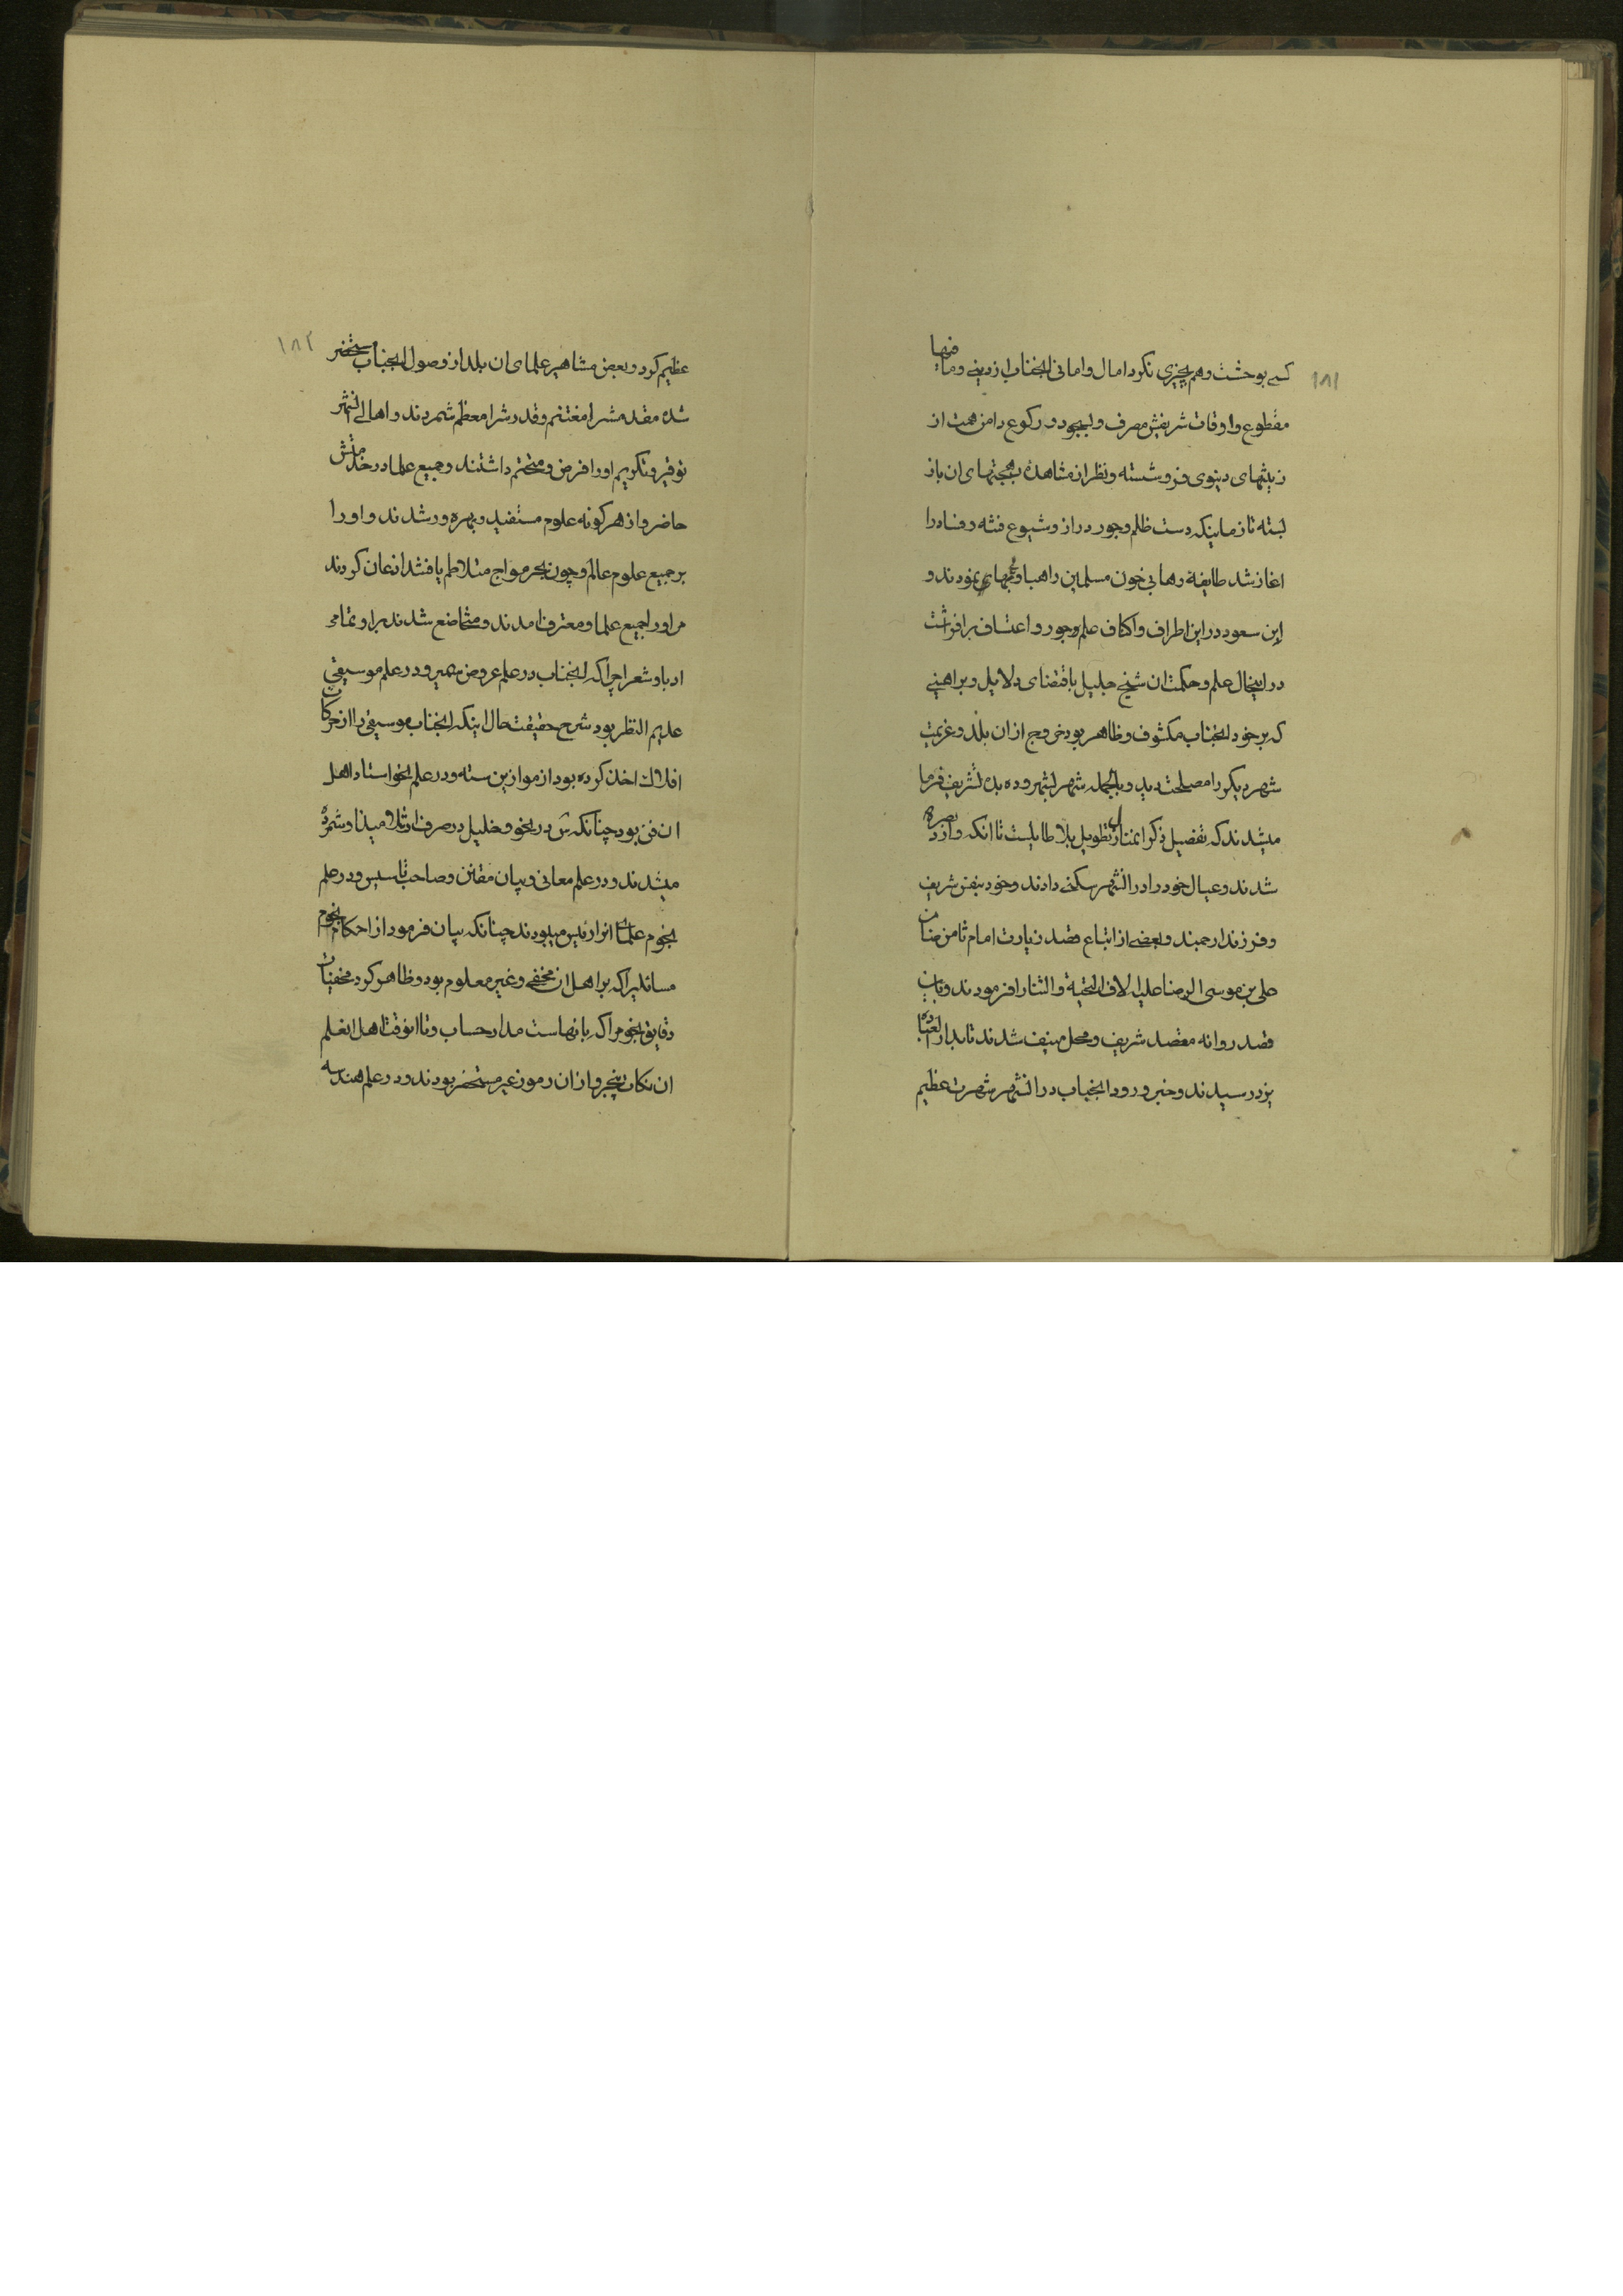 ۱۸۱
کسی بوحشت و هم بچیزی نکرد امال و امانی انجناب از دنیی و ما فیها
مقطوع و اوقات شریفش مصرف و لسجود و رکوع دامن همت از
زینتهای دینوی فرو شسته و نظر از مشاهدهٔ بهجتهای ان باز
بسته تا زمانیکه دست ظلم و جور دراز و شیوع فتنه و فساد را
اغاز شد طایفهٔ رهابی خون مسلمین را هبا و نمودند و
ابن سعود در این اطراف و اکناف علم جور و اعتساف برافراشت
در اینحال علم و حکمت ان شیخ جلیل باقتضای دلایل و براهینی
که بر خود انجناب مکشوف و ظاهر بود خروج از ان بلد و عزیمت
شهر دیکر را مصلحت دید و بالجمله شهر بشهر و ده بده تشریف فرما
میشدند که تفصیل ذکر انمنازل تطویل بلا طایلست تا انکه وارد بصره
شدند و عیال خود را در انشهر سکنی دادند و خود بنفس شریف
و فرزند ارجمند و بعضی از اتباع قصد زیارت امام ثامن ضامن
علی بن موسی الرضا علیه الاف التحیة و الثنا را فرمودند و باین
قصد روانه مقصد شریف و محل منیف شدند تا بدار العباده
یزد رسیدند و خبر ورود انجناب در انشهر شهرت عظیم
۱۸۲
عظیم کرد و بعض مشاهیر علمای ان بلد از وصول انجناب مستحضر
شده مقدمش را مغتنم و قدرش را معظم شمردند و اهالی انشهر
توقیر و تکریم او را فرض و متحتم داشتند و جمیع علما در خدمتش
حاضر و از هر کونه علوم مستفید و بهره ور شدند و او را
بر جمیع علوم عالم و چون بحر مواج متلاطم یافتند اذعان کردند
مر او را جمیع علما و معترف امدند و متخاضع شدند بر او تمامی
ادبا و شعرا چرا که انجناب در علم عروض و در علم موسیقی
عدیم النظیر بود شرح حقیقت حال اینکه انجناب موسیقی را از حرکات
افلاک اخذ کرده بود از موازین سته و در علم نحو استاد اهل
ان فن بود چنانکه س در نحو و خلیل در صرف از تلامیذ او شمرده
میشدند و در علم معانی و بیان مقنن و صاحب تاسیس و در علم
نجوم علمای انرا رئیس میبودند چنانکه بیان فرمود از احکام نجوم
مسائلیرا که بر اهل ان مخفی و غیر معلوم بود و ظاهر کرد مخفیات
دقایق نجوم را که بانهاست مدار حساب و تا انوقت اهل انعلم
ان نکات بیخبر و از ان رموز غیر مستحضر بودند و در علم هندسه